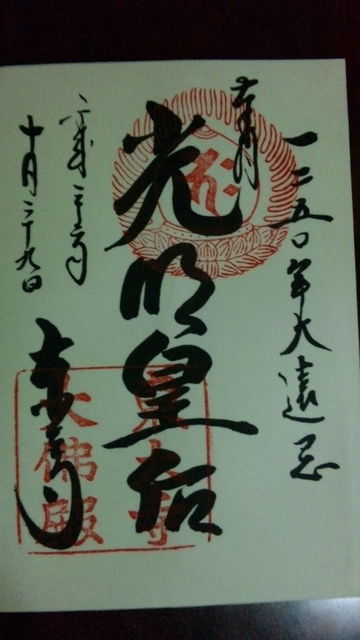 一二五〇年大遠忌
奉拝
光明皇后
平成二十二年
十月二十九日
東大寺
東大寺
大佛殿